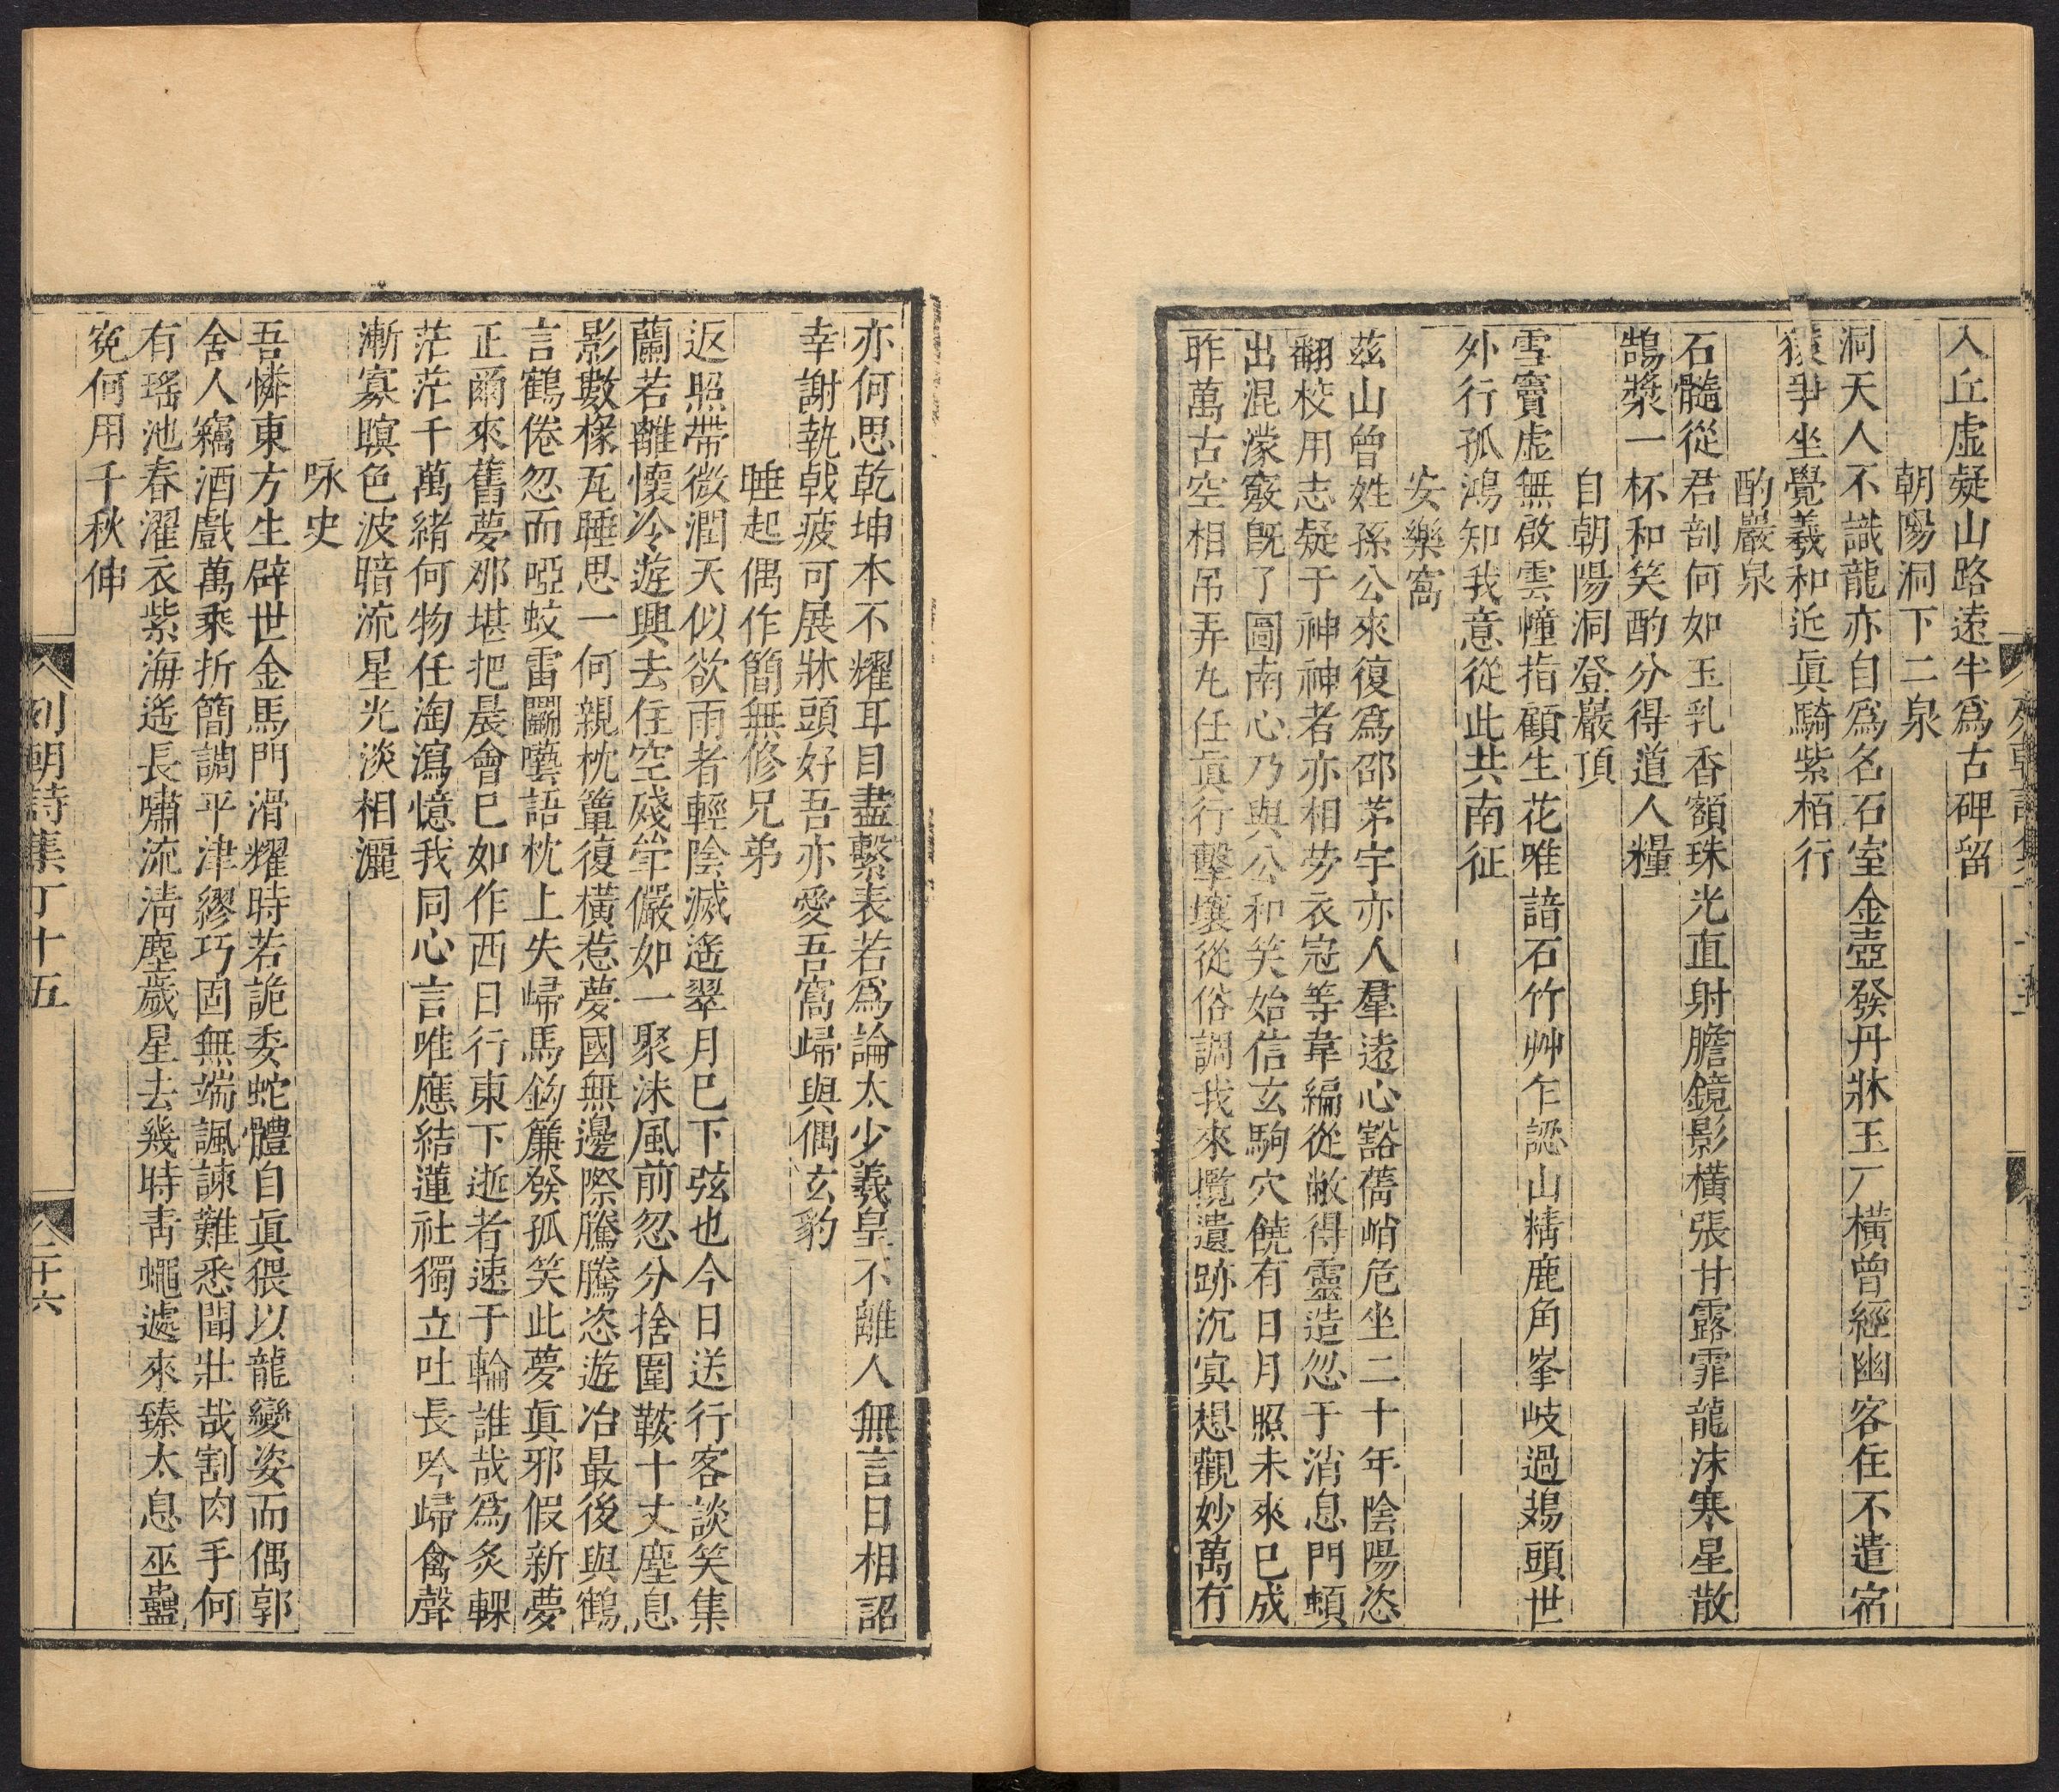 入丘虛疑山路遠半爲古碑留
朝陽洞下二泉
洞天人不識龍亦自爲名石室金壺發丹牀玉厂橫曾經幽客住不遣宿
猿爭坐覺羲和近眞騎紫栢行
酌巖泉
石髓從君剖何如玉乳香額珠光直射膽鏡影橫張甘露霏龍沫寒星散
鵠漿一杯和笑酌分得道人糧
自朝陽洞登巖頂
雪竇虛無啟雲幢指顧生花唯諳石竹艸乍認山精鹿角峯岐過鴟頭世
外行孤鴻知我意從此共南征
安樂窩
茲山曾姓孫公來復爲邵茅宇亦人羣遠心豁蒨峭危坐二十年陰陽恣
翻校用志疑于神神者亦相勞衣冠等韋編從敝得靈造忽于消息門頓
出混濛竅旣了圖南心乃與公和笑始信玄駒穴饒有日月照未來已成
昨萬古空相吊弄丸任眞行擊壤從俗調我來攬遺跡沉冥想觀妙萬有
亦何思乾坤本不耀耳目盡繫表若爲論太少羲皇不離人無言日相詔
幸謝執戟疲可展牀頭好吾亦愛吾窩歸與偶玄豹
睡起偶作簡無修兄弟
返照帶微潤天似欲雨者輕陰滅遙翠月已下弦也今日送行客談笑集
蘭若離懷冷遊興去住空殘斝儼如一聚沫風前忽分捨圍鞍十丈塵息
影數椽瓦睡思一何親枕簟復橫惹夢國無邊際騰騰恣遊冶最後與鶴
言鶴倦忽而啞蚊雷鬬囈語枕上失歸馬鈎簾發孤笑此夢眞邪假新夢
正爾來舊夢那堪把晨會已如作西日行東下逝者速于輪誰哉爲炙輠
茫茫千萬緒何物任淘瀉憶我同心言唯應結蓮社獨立吐長吟歸禽聲
漸寡暝色波暗流星光淡相灑
咏史
吾憐東方生辟世金馬門滑耀時若詭委蛇體自眞猥以龍變姿而偶郭
舍人竊酒戲萬乘折簡調平津繆巧固無端諷諫難悉聞壯哉割肉手何
有瑤池春濯衣紫海遙長嘯流清塵歲星去幾時靑蠅遽來臻太息巫蠱
寃何用千秋伸
列朝詩集丁十五
二十六